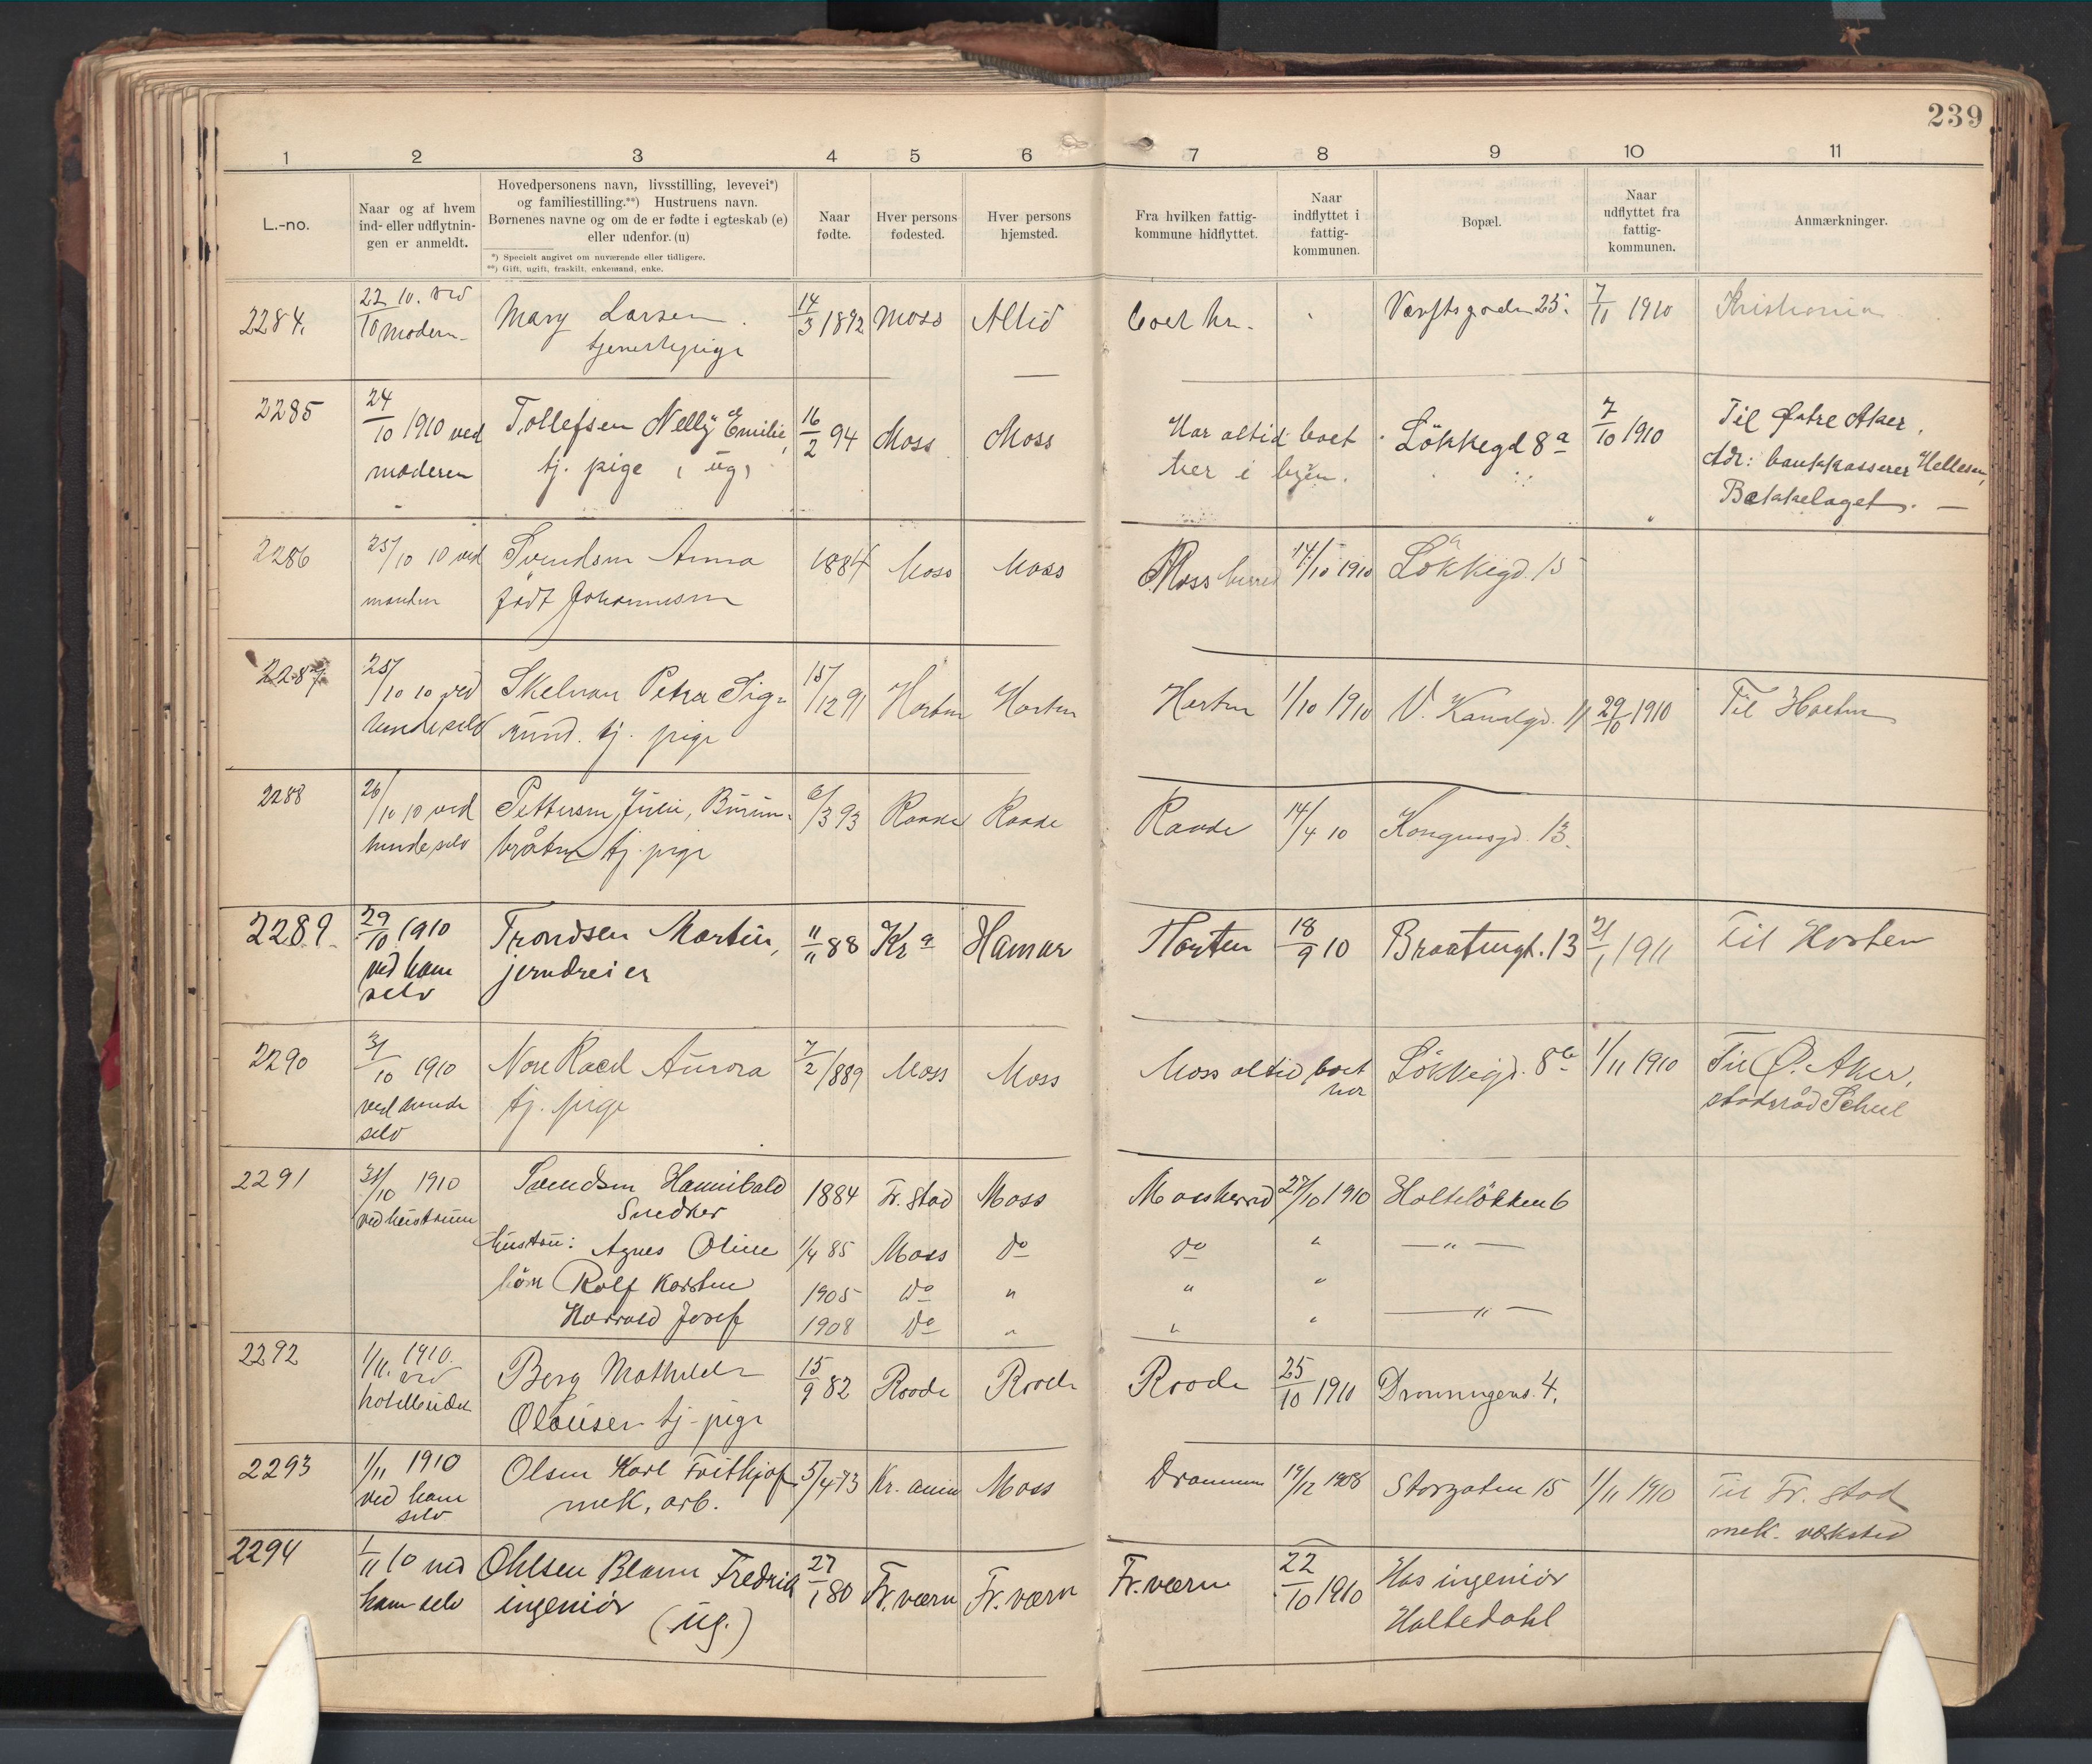 239
1 2 3 4 5 6 7 8 9 10 11
L.-no.
Naar og af hvem
ind- eller udflytnin-
gen er anmeldt.
Hovedpersonens navn, livsstilling, levevei*)
og familiestilling.**) Hustruens navn.
Børnenes navne og om de er fødte i egteskab (e)
eller udenfor. (u)
*) Specielt angivet om nuværende eller tidligere.
**) Gift, ugift, fraskilt, enkemand, enke.
Naar
fødte.
Hver persons
fødested.
Hver persons
hjemsted.
Fra hvilken fattig-
kommune hidflyttet.
Naar
indflyttet i
fattig-
kommunen.
Bopæl.
Naar
udflyttet fra
fattig-
kommunen.
Anmærkninger.
2284. 22/10 10. ved Mary Larsen 14/3 1892 Moss Altid boet her. Værftsgaden 25. 7/11 1910 Kristiania
modern tjenestepige
2285 24/10 1910 ved Tollefsen Nelly Emilie, 16/2 94 Moss Moss Har altid boet Løkkegd 8a 7/10 1910 Til Østre Aker.
moderen tj. pige (ug) her i byen. Adr: bankkasserer Hellesen,
Bækkelaget.
2286 25/10 10 ved Svendsen Anna 1884 Moss Moss Moss herred 14/10 1910 Løkkegd. 15
manden født Johannesen
2287 25/10 10 ved Petra Sig- 15/12 91 Horten Horten Horten 1/10 1910 V. Kanalgd. 11 29/10 1910 Til Horten
hende selv mund. tj. pige
2288 26/10 10 ved Pettersen, Julie, 6/3 93 Raade Raade Raade 14/4 10 Kongensgd. 13.
hende selv bråten tj. pige
2289. 29/10 1910 Trondsen Martin, 11/11 88 Kr a Hamar Horten 18/9 10 Braatengt. 13 2/1 1911 Til Horten
ved ham jerndreier
selv
2290 31/10 1910 Nore Roed Aurora 7/2 1889 Moss Moss Moss altid boet Løkkegd. 8b 1/11 1910 Til Ø. Aker,
ved hende tj. pige her
selv
2291 31/10 1910 Svendsen Hannibald 1884 Fr. stad Moss Moss herred 27/10 1910 Holteløkken 6
ved hustruen Snedker
hustru: Agnes Oline 1/4 85 Moss Do Do " — " —
børn Rolf Karsten 1905 Do " " "
Harrald Josef 1908 Do " " " — " —
2292 1/11. 1910. Berg Mathilde 15/9 82 Raade Raade Raade 25/10 1910 Dronningens. 4.
ved
Olausen tj. pige
2293 1/11 1910 Olsen Karl Frithjof 5/4 73 Kr. ania Moss Drammen 19/12 1908 Storgaten 15 1/11 1910 Til Fr. stad
ved ham mek. arb. mek. værksted
selv
2294 1/11 10 ved Ohlsen Fredrik 27/1 80 Fr. værn Fr. værn Fr. værn 22/10 1910 Hos ingeniør
ham selv ingeniør (ug.) Holtedahl